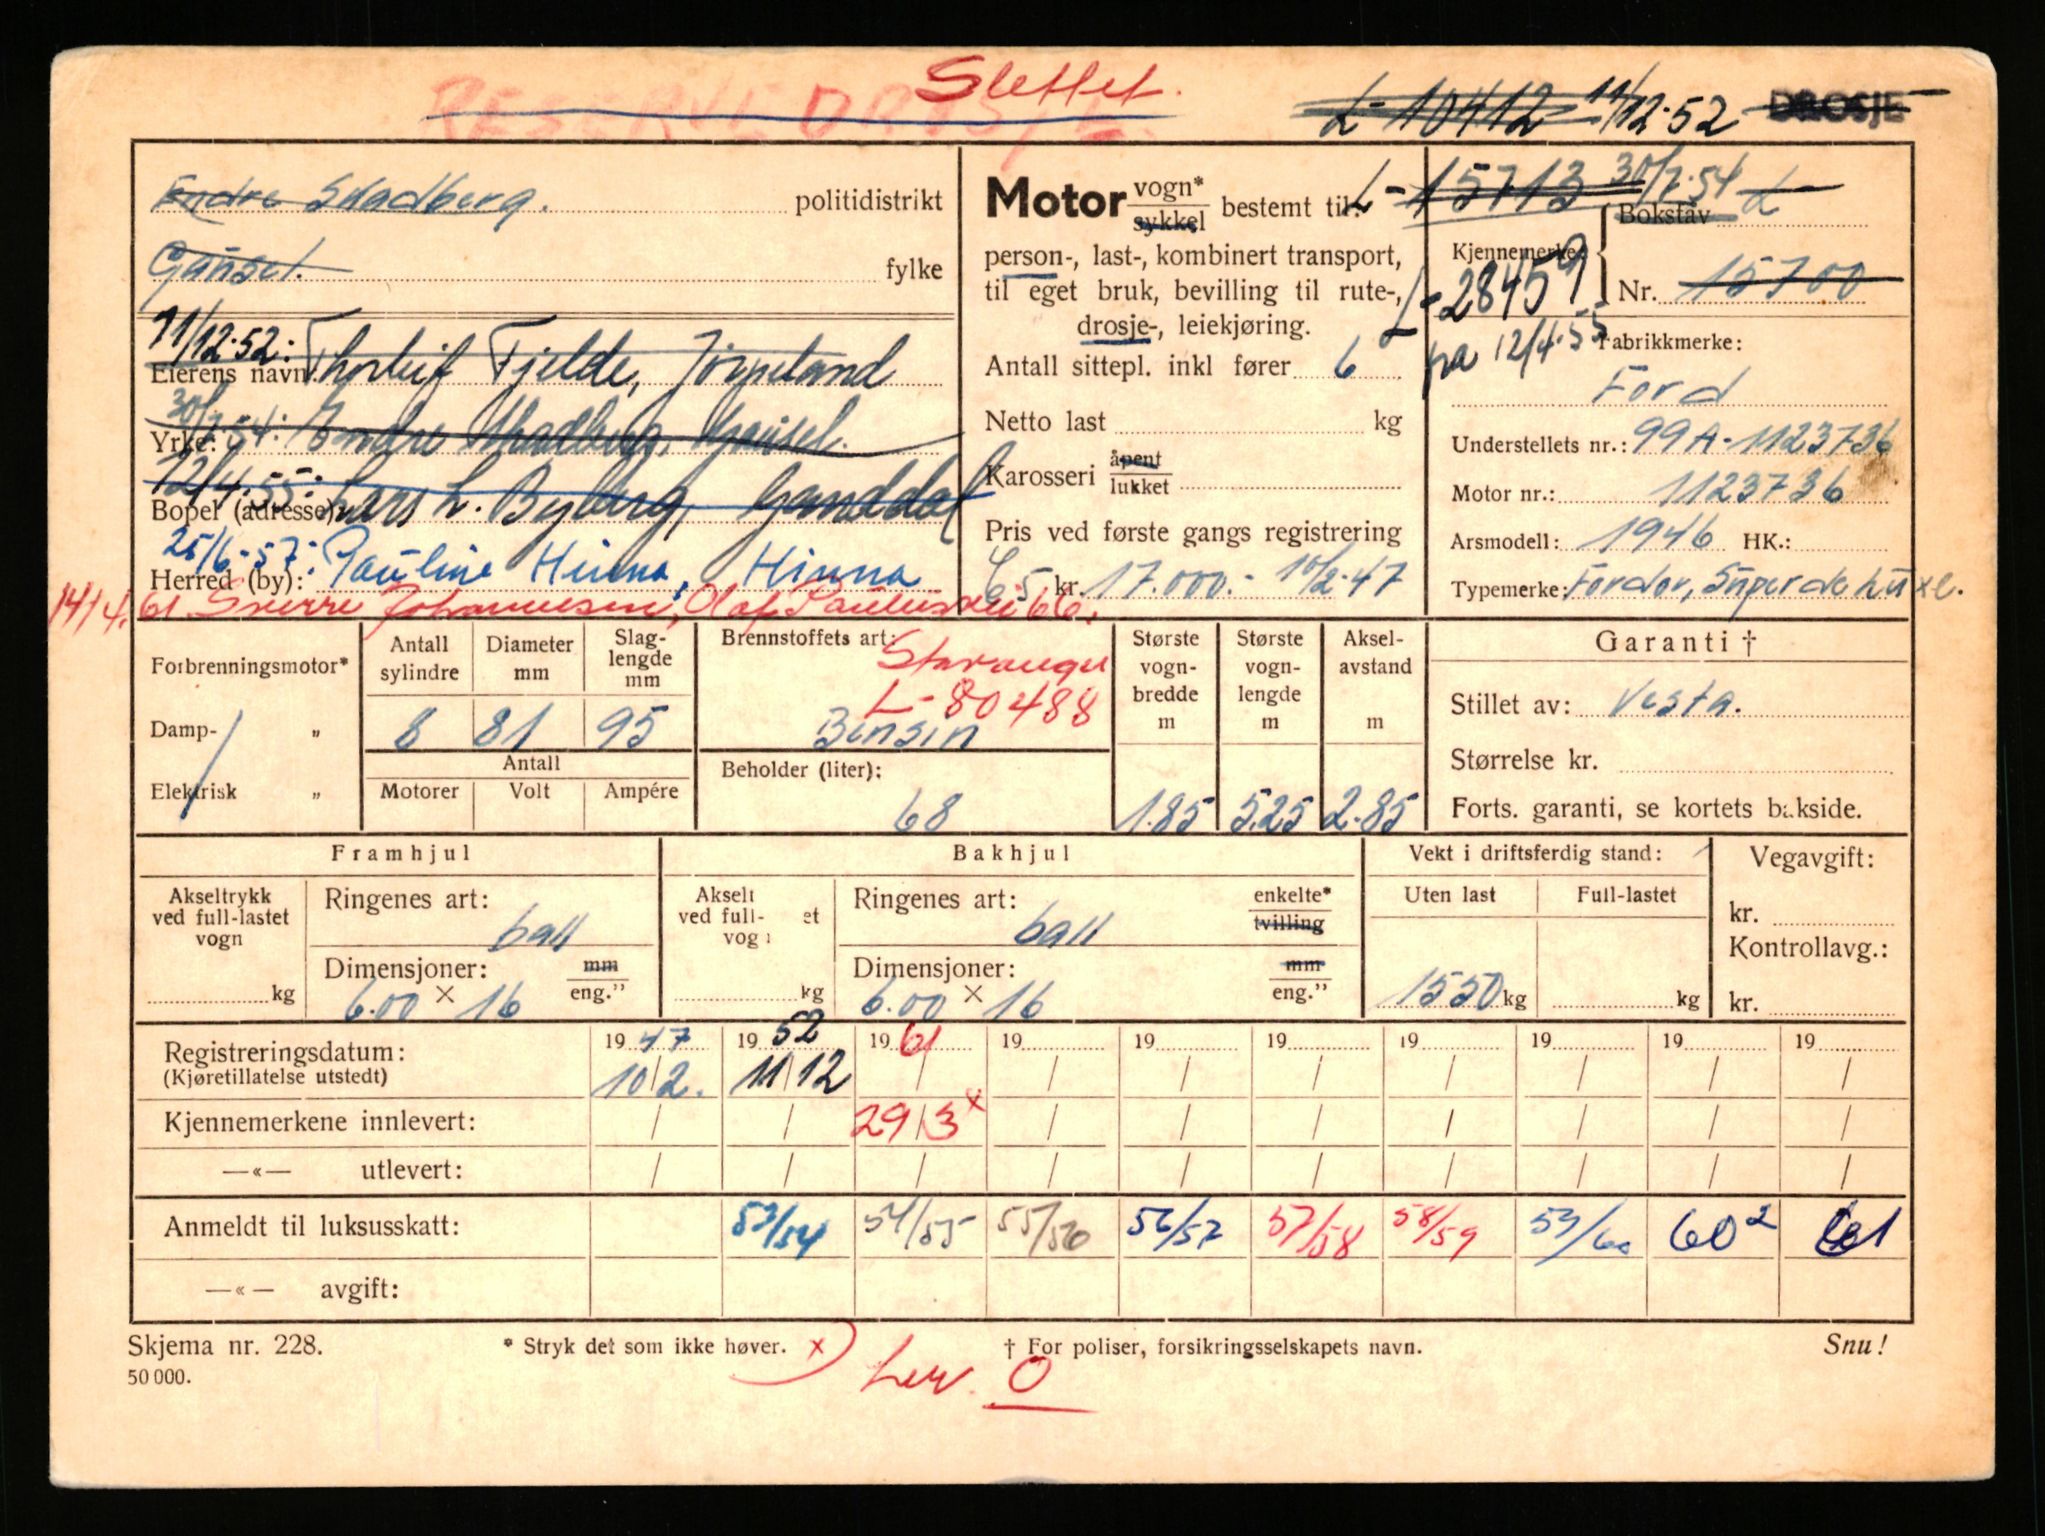 Slettet.
RESERVEDROSJE.
L-10412 11/12-52 DROSJE
Endre Skadberg. politidistrikt
Gausel. fylke
11/12-52: Thorleif Fjelde, Jørpeland
Eierens navn
30/7-54: Endre Skadberg, Gausel.
Yrke:
12/4-55: Lars L. Byberg, Ganddal
Bopel (adresse)
25/6-57: Pauline Hinna, Hinna
Herred (by):
14/4.61 Sverre Johannesen, Olaf Paulus
Stavanger
L-80488
Motor vogn* sykkel bestemt til:
person-, last-, kombinert transport,
til eget bruk, bevilling til rute-,
drosje-, leiekjøring.
Antall sittepl. inkl fører 6
Netto last kg
Karosseri åpent lukket
Pris ved første gangs registrering
kr. 17.000.- 10/2-47
L-15713 30/7-54 L
Bokstav
Kjennemerke
L-28459
Nr. 15700
fra 12/4-55
Fabrikkmerke:
Ford
Understellets nr.: 99A-1123736
Motor nr.: 1123736
Arsmodell: 1946 HK.:
Typemerke: Fordor, Super de luxe.
Forbrenningsmotor*
Damp- „
Elektrisk „
Antall sylindre
Diameter mm
Slag-lengde mm
8 81 95
Antall
Motorer Volt Ampére
Brennstoffets art:
Bensin
Beholder (liter):
68
Største vogn-bredde m
Største vogn-lengde m
Aksel-avstand m
1.85 5.25 2.85
Garanti †
Stillet av: Vesta.
Størrelse kr.
Forts. garanti, se kortets bakside.
Framhjul
Akseltrykk ved full-lastet vogn
kg
Ringenes art:
ball
Dimensjoner: mm eng.”
6.00 × 16
Bakhjul
Akselt
ved full- et
vog
kg
Ringenes art: enkelte* tvilling
ball
Dimensjoner: mm eng.”
6.00 × 16
Vekt i driftsferdig stand:
Uten last Full-lastet
1550 kg kg
Vegavgift:
kr.
Kontrollavg.:
kr.
Registreringsdatum: 19 47 19 52 19 61 19 19 19 19 19 19 19
(Kjøretillatelse utstedt) 10/2. 11/12 / / / / / / / /
Kjennemerkene innlevert: / / 29/3 x / / / / / / /
—«— utlevert: / / / / / / / / / /
Anmeldt til luksusskatt: 53/54 54/55 55/56 56/57 57/58 58/59 59/60 60² 61
—«— avgift:
Skjema nr. 228. * Stryk det som ikke høver. x) † For poliser, forsikringsselskapets navn. Snu!
50 000. Lev. O